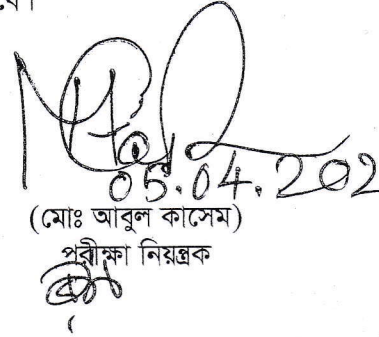 05.04.202
(মোঃ আবুল কাসেম)
পরীক্ষা নিয়ন্ত্রক